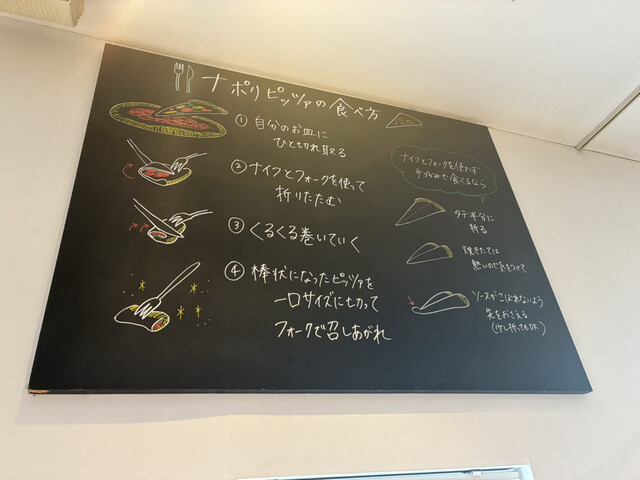 ナポリピッツァの食べ方
① 自分のお皿に
ひと切れ取る
② ナイフとフォークを使って
折りたたむ
③ くるくる巻いていく
④ 棒状になったピッツァを
一口サイズに切って
フォークで召しあがれ
ナイフとフォークを使わず
手づかみで食べるなら
タテ半分に
折る
焼きたては
熱いので気をつけて
ソースがこぼれないよう
先をおさえる
(少し折ってもOK)